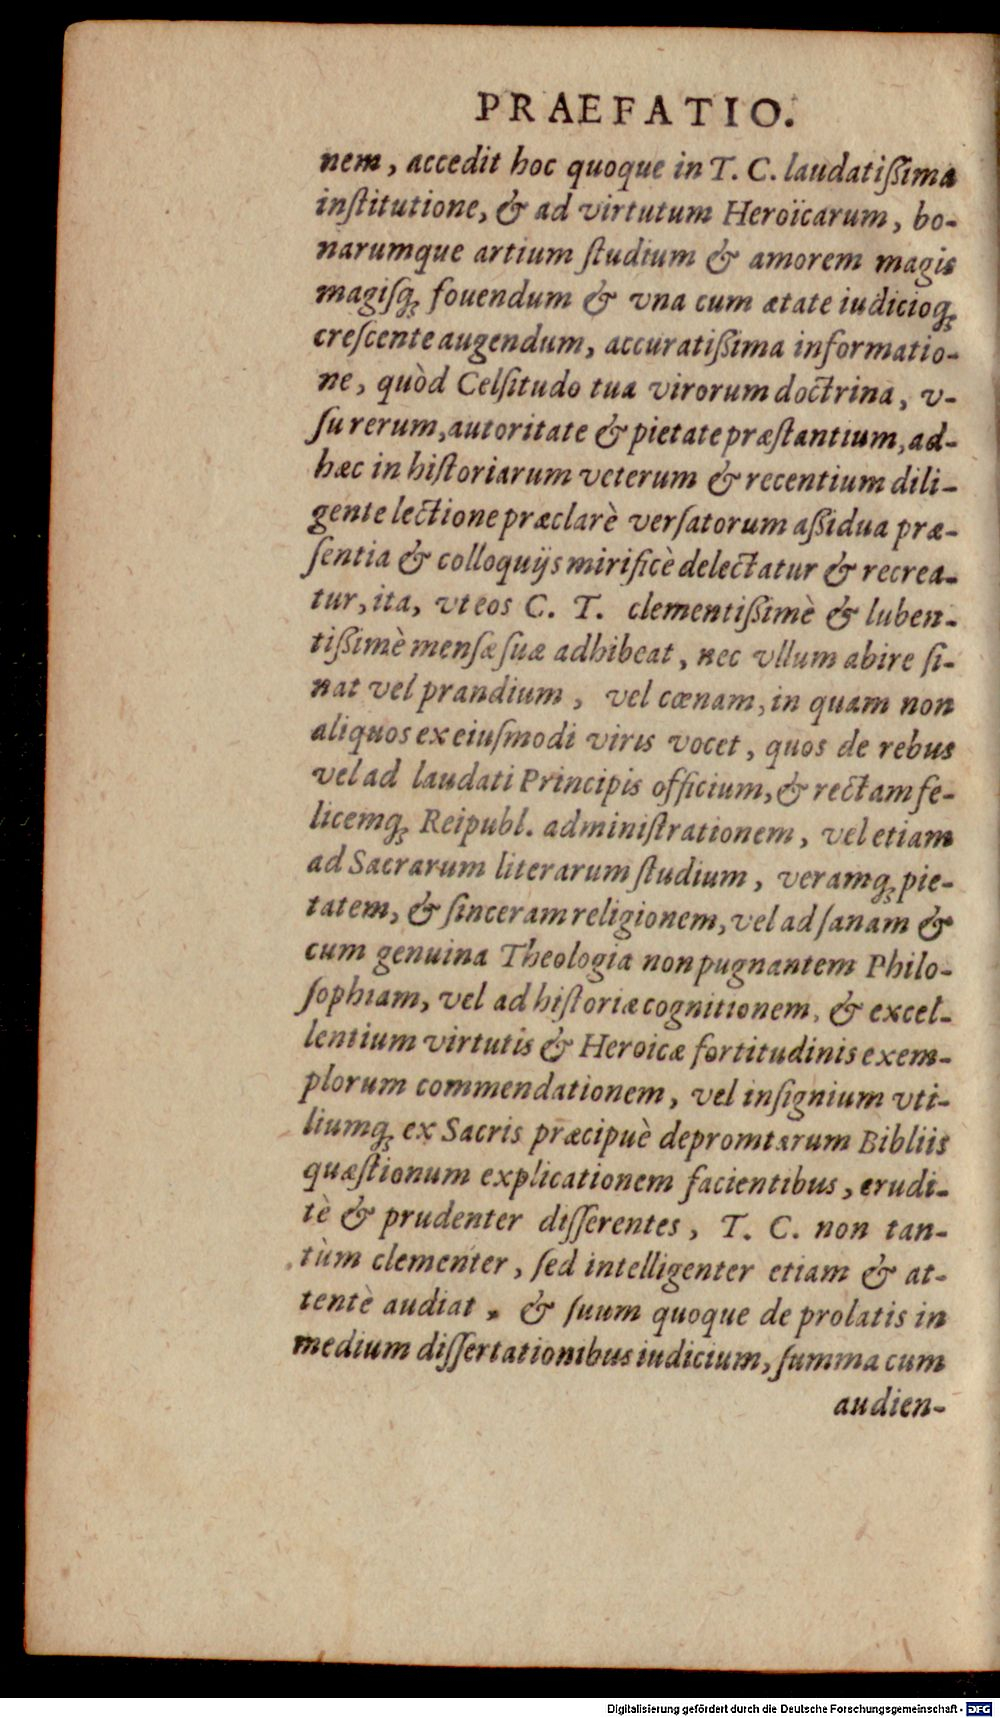 PRAEFATIO.
nem, accedit hoc quoque in T. C. laudatißima
inſtitutione, & ad virtutum Heroïcarum, bo-
narumque artium ſtudium & amorem magis
magiſq; fouendum & vna cum ætate iudicioq;
creſcente augendum, accuratißima informatio-
ne, quòd Celſitudo tua virorum doctrina, v-
ſu rerum, autoritate & pietate præſtantium, ad-
hæc in hiſtoriarum veterum & recentium dili-
gente lectione præclarè verſatorum aßidua præ-
ſentia & colloquijs mirificè delectatur & recrea-
tur, ita, vt eos C. T. clementißimè & luben-
tißimè menſæ ſuæ adhibeat, nec vllum abire ſi-
nat vel prandium, vel cœnam, in quam non
aliquos ex eiuſmodi viris vocet, quos de rebus
vel ad laudati Principis officium, & rectam fe-
licemq; Reipubl. adminiſtrationem, vel etiam
ad Sacrarum literarum ſtudium, veramq; pie-
tatem, & ſinceram religionem, vel ad ſanam &
cum genuina Theologia non pugnantem Philo-
ſophiam, vel ad hiſtoriæ cognitionem, & excel-
lentium virtutis & Heroicæ fortitudinis exem-
plorum commendationem, vel inſignium vti-
liumq; ex Sacris præcipuè depromtarum Bibliis
quæſtionum explicationem facientibus, erudi-
tè & prudenter diſſerentes, T. C. non tan-
tùm clementer, ſed intelligenter etiam & at-
tentè audiat, & ſuum quoque de prolatis in
medium diſſertationibus iudicium, ſumma cum
audien-
Digitalisierung gefördert durch die Deutsche Forschungsgemeinschaft - DFG